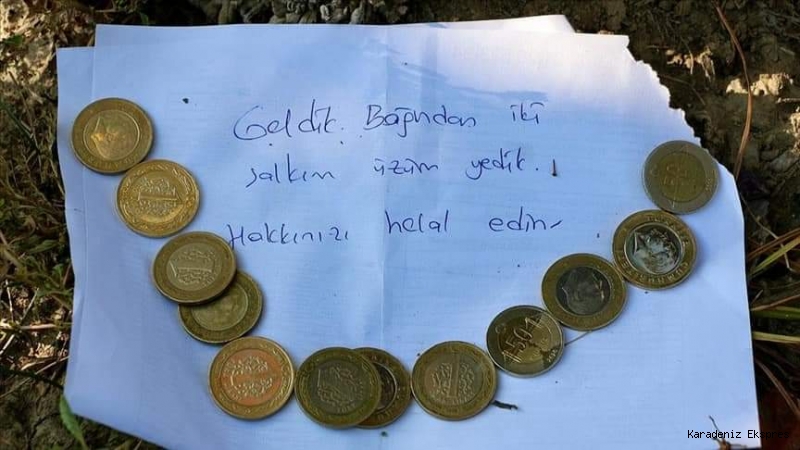 Geldik. Bağından iki
salkım üzüm yedik.
Hakkınızı helal edin.
Karadeniz Ekspres